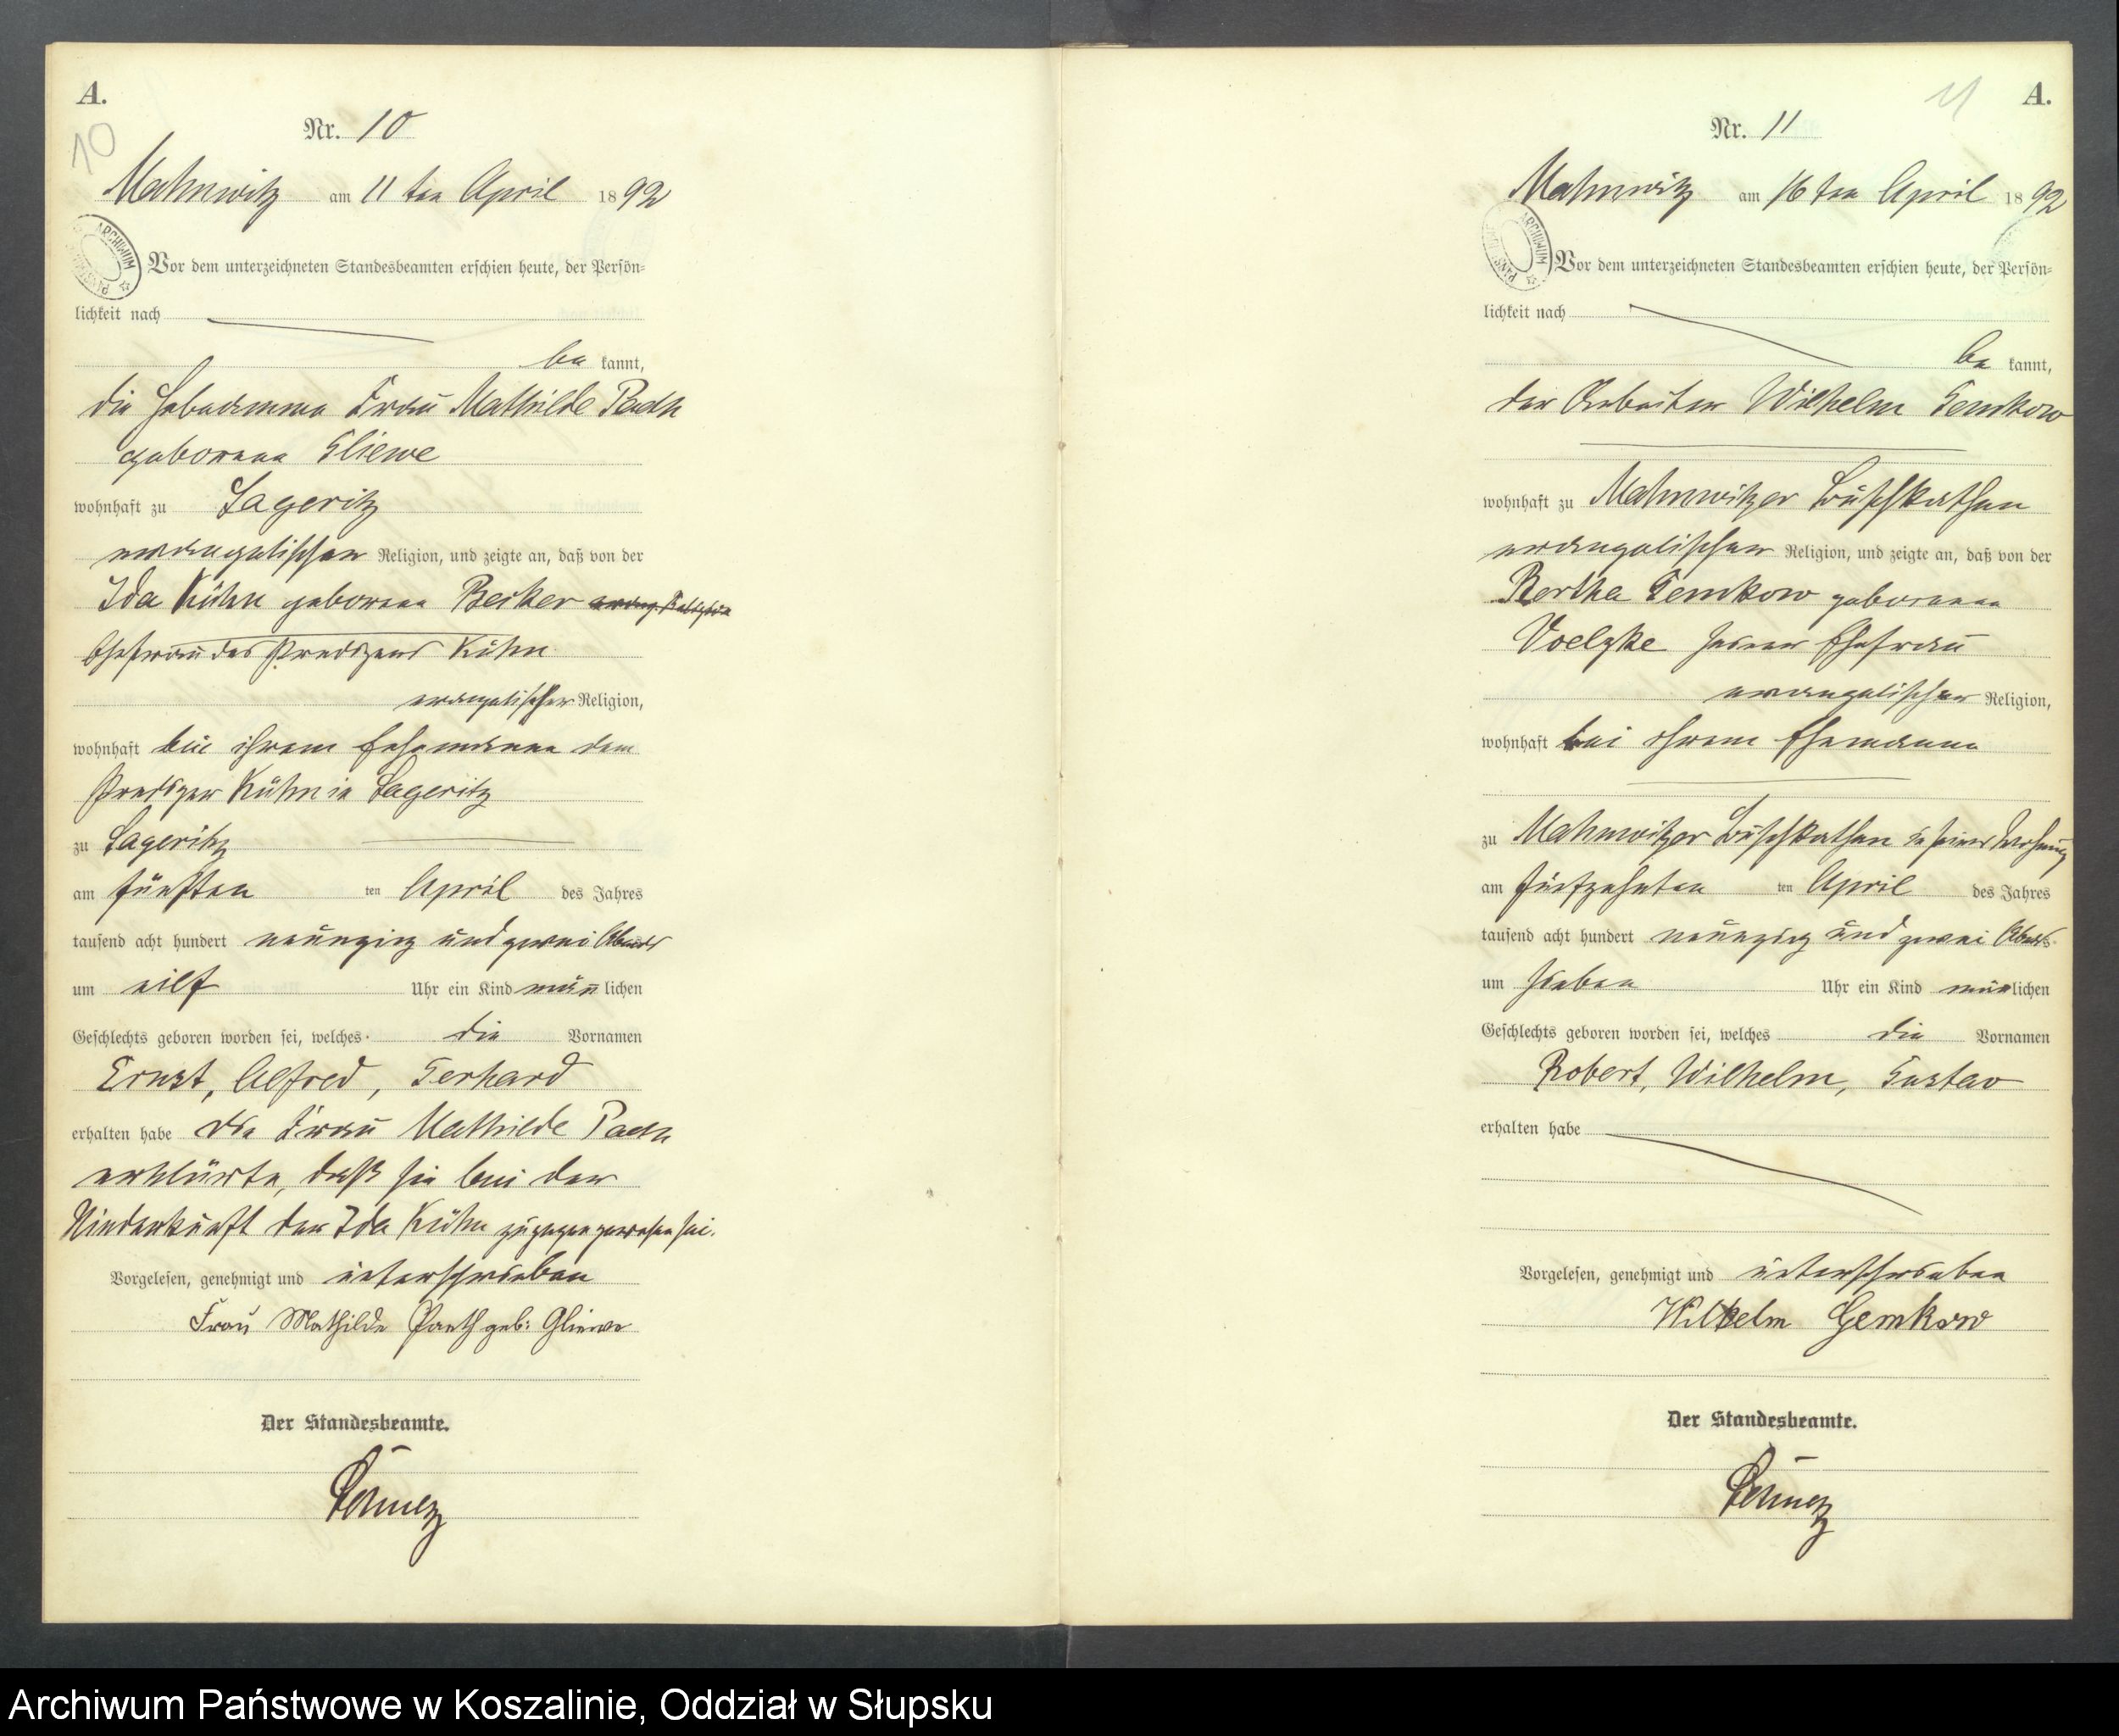 A.
10
Nr. 10
Mahnwitz am 11 ten April 1892
Vor dem unterzeichneten Standesbeamten erschien heute, der Persön=
lichkeit nach
be kannt,
die Hebeamme Frau Mathilde
geborene Gliewe
wohnhaft zu Sageritz
evangelischer Religion, und zeigte an, daß von der
Ida Kühn geborene Becker
Ehefrau des Predigers Kühn
evangelischer Religion,
wohnhaft bei ihrem Ehemanne dem
Prediger Kühn in Sageritz
zu Sageritz
am fünften ten April des Jahres
tausend acht hundert neunzig und zwei Abends
um eilf Uhr ein Kind männlichen
Geschlechts geboren worden sei, welches die Vornamen
Ernst, Alfred, Gerhard
erhalten habe die Frau Mathilde
erklärte, daß sie bei der
Niederkunft der Ida Kühn zugegen gewesen sei.
Vorgelesen, genehmigt und unterschrieben
Frau Mathilde Paeth geb: Gliewe
Der Standesbeamte.
A.
11
Nr. 11
Mahnwitz am 16 ten April 1892
Vor dem unterzeichneten Standesbeamten erschien heute, der Persön=
lichkeit nach
be kannt,
der Arbeiter Wilhelm Gemkow
wohnhaft zu Mahnwitzer Buschkathen
evangelischer Religion, und zeigte an, daß von der
Bertha Gemkow geborenen
Voelzke seiner Ehefrau
evangelischer Religion,
wohnhaft bei ihrem Ehemanne
zu Mahnwitzer Buschkathen in seiner Wohnung
am fünfzehnten ten April des Jahres
tausend acht hundert neunzig und zwei Abends
um sieben Uhr ein Kind männlichen
Geschlechts geboren worden sei, welches die Vornamen
Robert, Wilhelm, Gustav
erhalten habe
Vorgelesen, genehmigt und unterschrieben
Wilhelm Gemkow
Der Standesbeamte.
Archiwum Państwowe w Koszalinie, Oddział w Słupsku